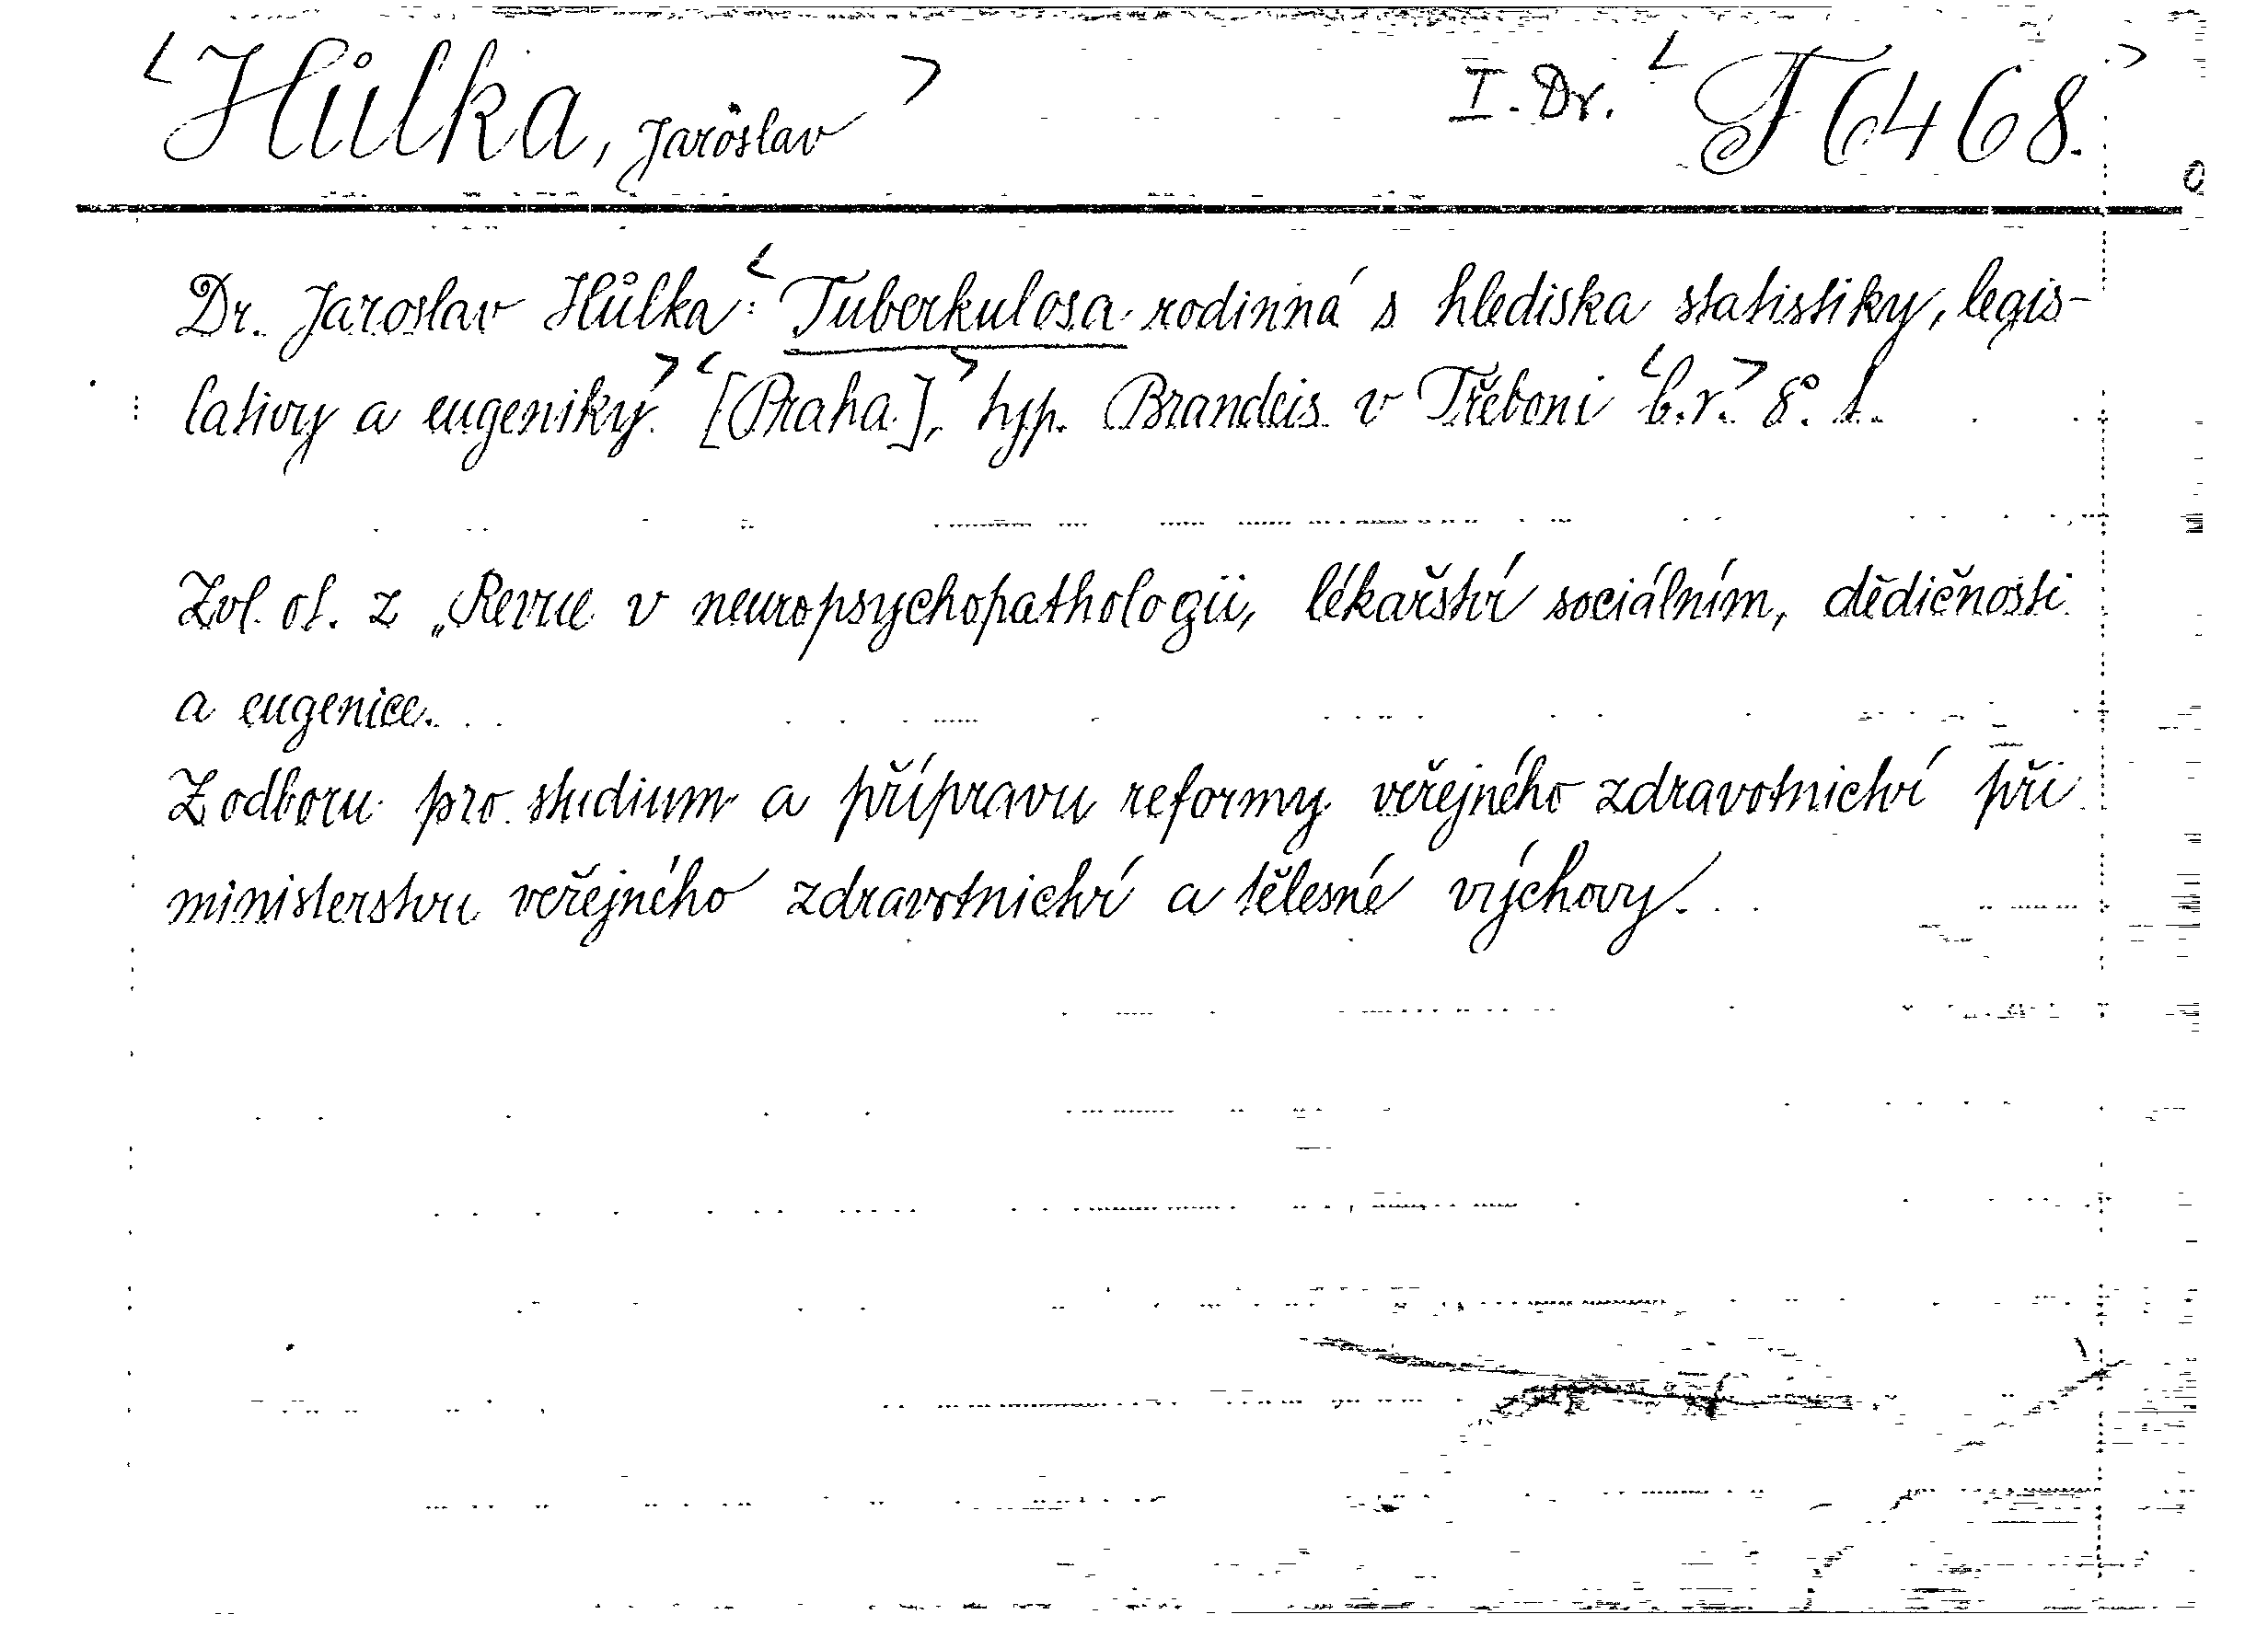 <Hůlka, Jaroslav> I. Dr. <F 6468.>
Dr. Jaroslav Hůlka: <Tuberkulosa rodinná s hlediska statistiky, legis-
lativy a eugeniky.> <[Praha],> typ. Brandeis v Třeboni <b.r.> 8°. 1.
Zvl. ot. z „Revue v neuropsychopathologii, lékařství sociálním, dědičnosti
a eugenice.
Z odboru pro studium a přípravu reformy veřejného zdravotnictví při
ministerstvu veřejného zdravotnictví a tělesné výchovy.